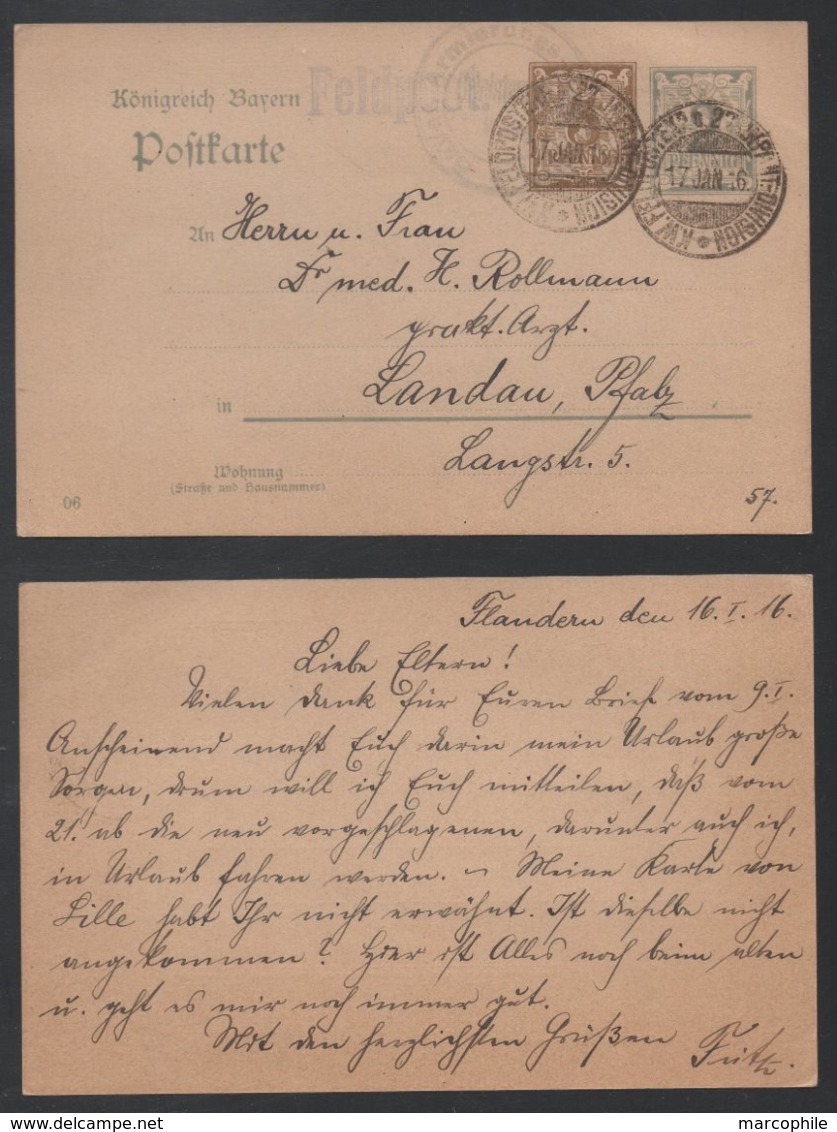 Königreich Bayern
Postkarte
Feldpost.
17 JAN 16
PFENNIG
17 JAN 16
An Herrn u. Frau
Dr med. H. Rollmann
prakt. Arzt.
in Landau, Pfalz
Langstr. 5.
Wohnung
(Straße und Hausnummer)
06
57.
Flandern den 16. I. 16.
Liebe Eltern!
Vielen Dank für Euren Brief vom 9. I.
Anscheinend macht Euch darin mein Urlaub große
Sorgen, drum will ich Euch mitteilen, daß vom
21. ab die neu vorgeschlagenen, darunter auch ich,
in Urlaub fahren werden. – Meine Karte von
Lille habt Ihr nicht erwähnt. Ist dieselbe nicht
angekommen? Hier ist Alles noch beim alten
u. geht es mir noch immer gut.
Mit den herzlichsten Grüßen
Fritz.
marcophile